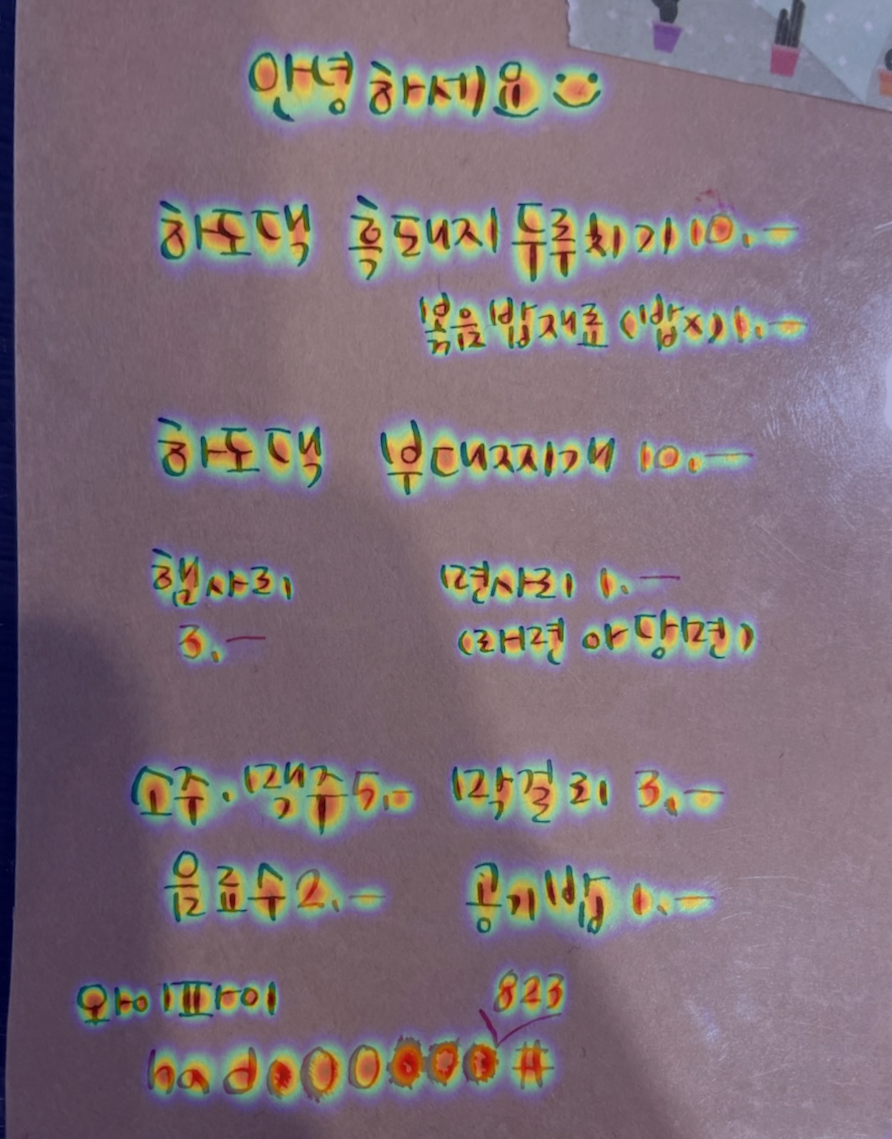 안녕하세요
하도댁 흑돼지 두루치기 10.-
볶음밥재료 (밥x) 1.-
하도댁 부대찌개 10.-
햄사리 면사리 1.-
3.- (라면 아 당면)
소주.맥주 5.- 막걸리 3.-
음료수 2.- 공기밥 1.-
와이파이 823